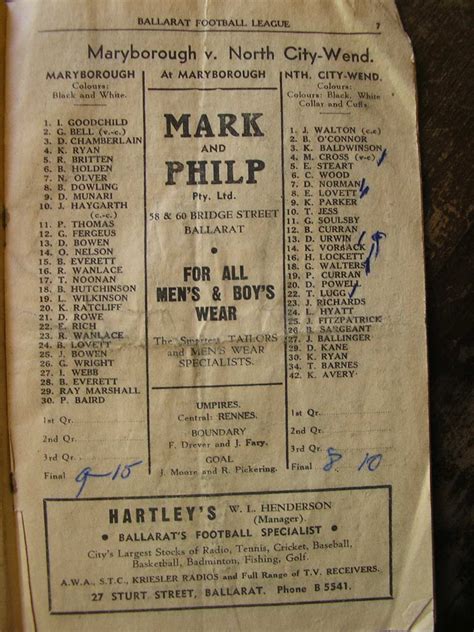 BALLARAT FOOTBALL LEAGUE 7
Maryborough v. North City-Wend.
MARYBOROUGH
Colours:
Black and White.
1. I. GOODCHILD
2. G. BELL (v.-c.)
3. D. CHAMBERLAIN
4. K. RYAN
5. R. BRITTEN
6. B. HOLDEN
7. N. OLVER
8. B. DOWLING
9. D. MUNARI
10. J. HAYGARTH
(c.-c.)
11. P. THOMAS
12. G. FERGEUS
13. D. BOWEN
14. O. NELSON
15. B. EVERETT
16. R. WANLACE
17. T. NOONAN
18. B. HUTCHINSON
19. L. WILKINSON
20. K. RATCLIFF
21. D. ROWE
22. E. RICH
23. R. WANLACE
24. B. LOVETT
25. J. BOWEN
26. G. WRIGHT
27. I. WEBB
28. B. EVERETT
29. RAY MARSHALL
30. P. BAIRD
1st Qr.
2nd Qr.
3rd Qr.
Final 9-15
At MARYBOROUGH
MARK
AND
PHILP
Pty. Ltd.
58 & 60 BRIDGE STREET
BALLARAT
FOR ALL
MEN'S & BOY'S
WEAR
The Smartest TAILORS
and MEN'S WEAR
SPECIALISTS.
UMPIRES.
Central: RENNES.
BOUNDARY
F. Drever and J. Fary.
GOAL
J. Moore and R. Pickering.
NTH. CITY-WEND.
Colours:
Colours: Black, White
Collar and Cuffs.
1. J. WALTON (c.c)
2. B. O'CONNOR
3. K. BALDWINSON
4. M. CROSS (v.-c.)
5. E. STEART
6. C. WOOD
7. D. NORMAN
8. E. LOVETT
9. K. PARKER
10. T. JESS
11. G. SOULSBY
12. B. CURRAN
13. D. URWIN
14. K. VORBACK
16. H. LOCKETT
18. G. WALTERS
19. P. CURRAN
20. D. POWELL
22. T. LUGG
23. J. RICHARDS
24. L. HYATT
25. J. FITZPATRICK
26. B. SARGEANT
27. J. BALLINGER
29. D. KANE
30. K. RYAN
34. T. BARNES
42. K. AVERY
1st Qr.
2nd Qr.
3rd Qr.
Final 8 10
HARTLEY'S W. L. HENDERSON
(Manager).
• BALLARAT'S FOOTBALL SPECIALIST •
City's Largest Stocks of Radio, Tennis, Cricket, Baseball,
Basketball, Badminton, Fishing, Golf.
A.W.A., S.T.C., KRIESLER RADIOS and Full Range of T.V. RECEIVERS.
27 STURT STREET, BALLARAT. Phone B 5541.